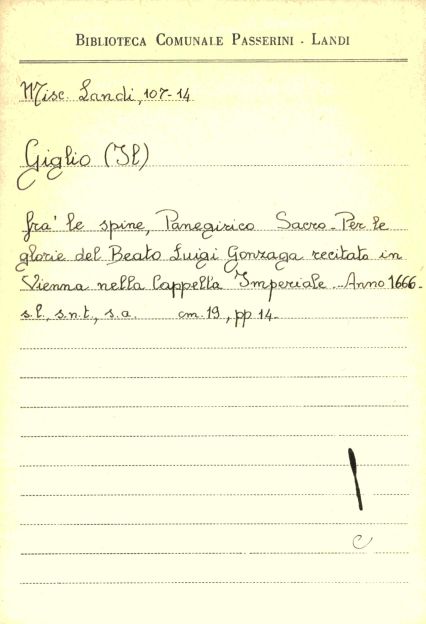 BIBLIOTECA COMUNALE PASSERINI - LANDI
Misc. Landi, 107-14
Giglio (Il)
fra' le spine, Panegirico Sacro - Per le
glorie del Beato Luigi Gonzaga recitato in
Vienna nella Cappella Imperiale - Anno 1666 -
s.l., s.n.t., s.a. cm. 19, pp 14 -
C